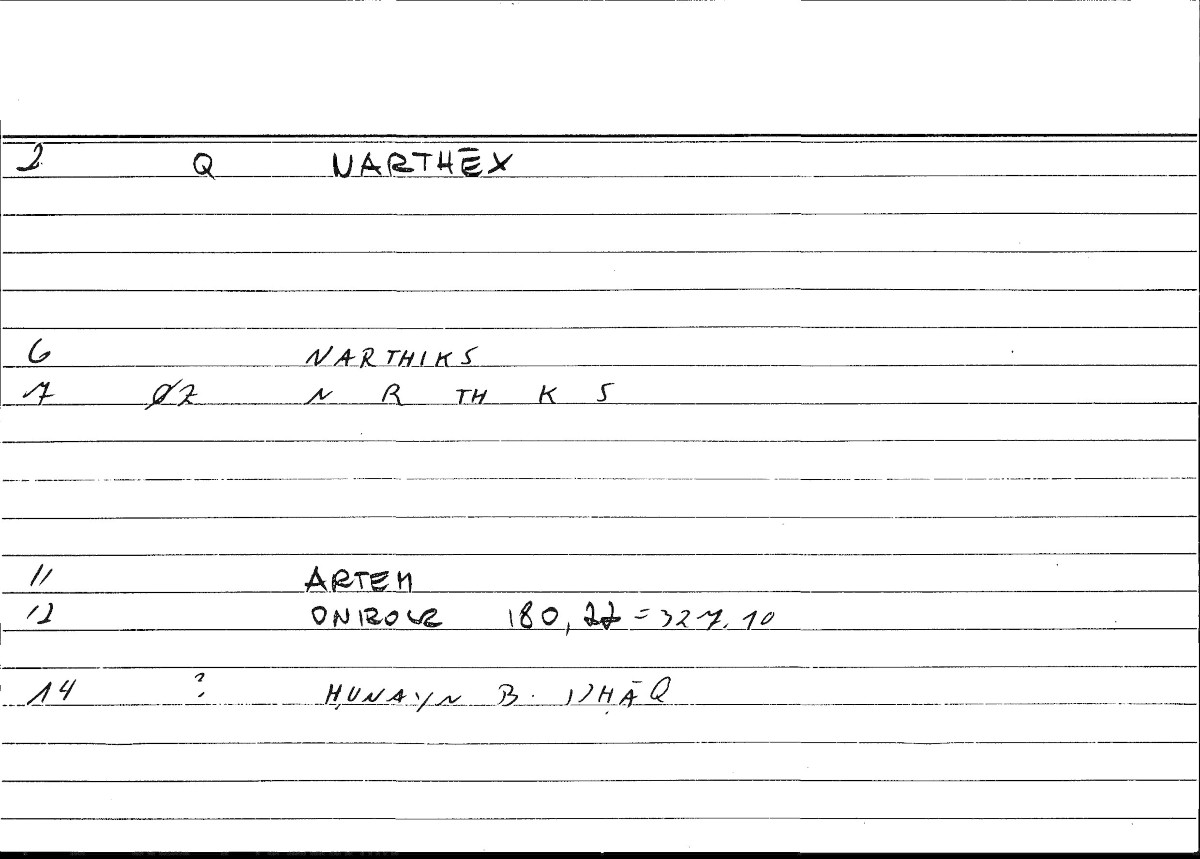 2 Q NARTHĒX
6 NARTHIKS
7 ØZ N R TH K S
11 ARTEM
12 ONIROCR 180, 22 = 327.10
14 ? ḤUNAYN B. ISḤĀQ